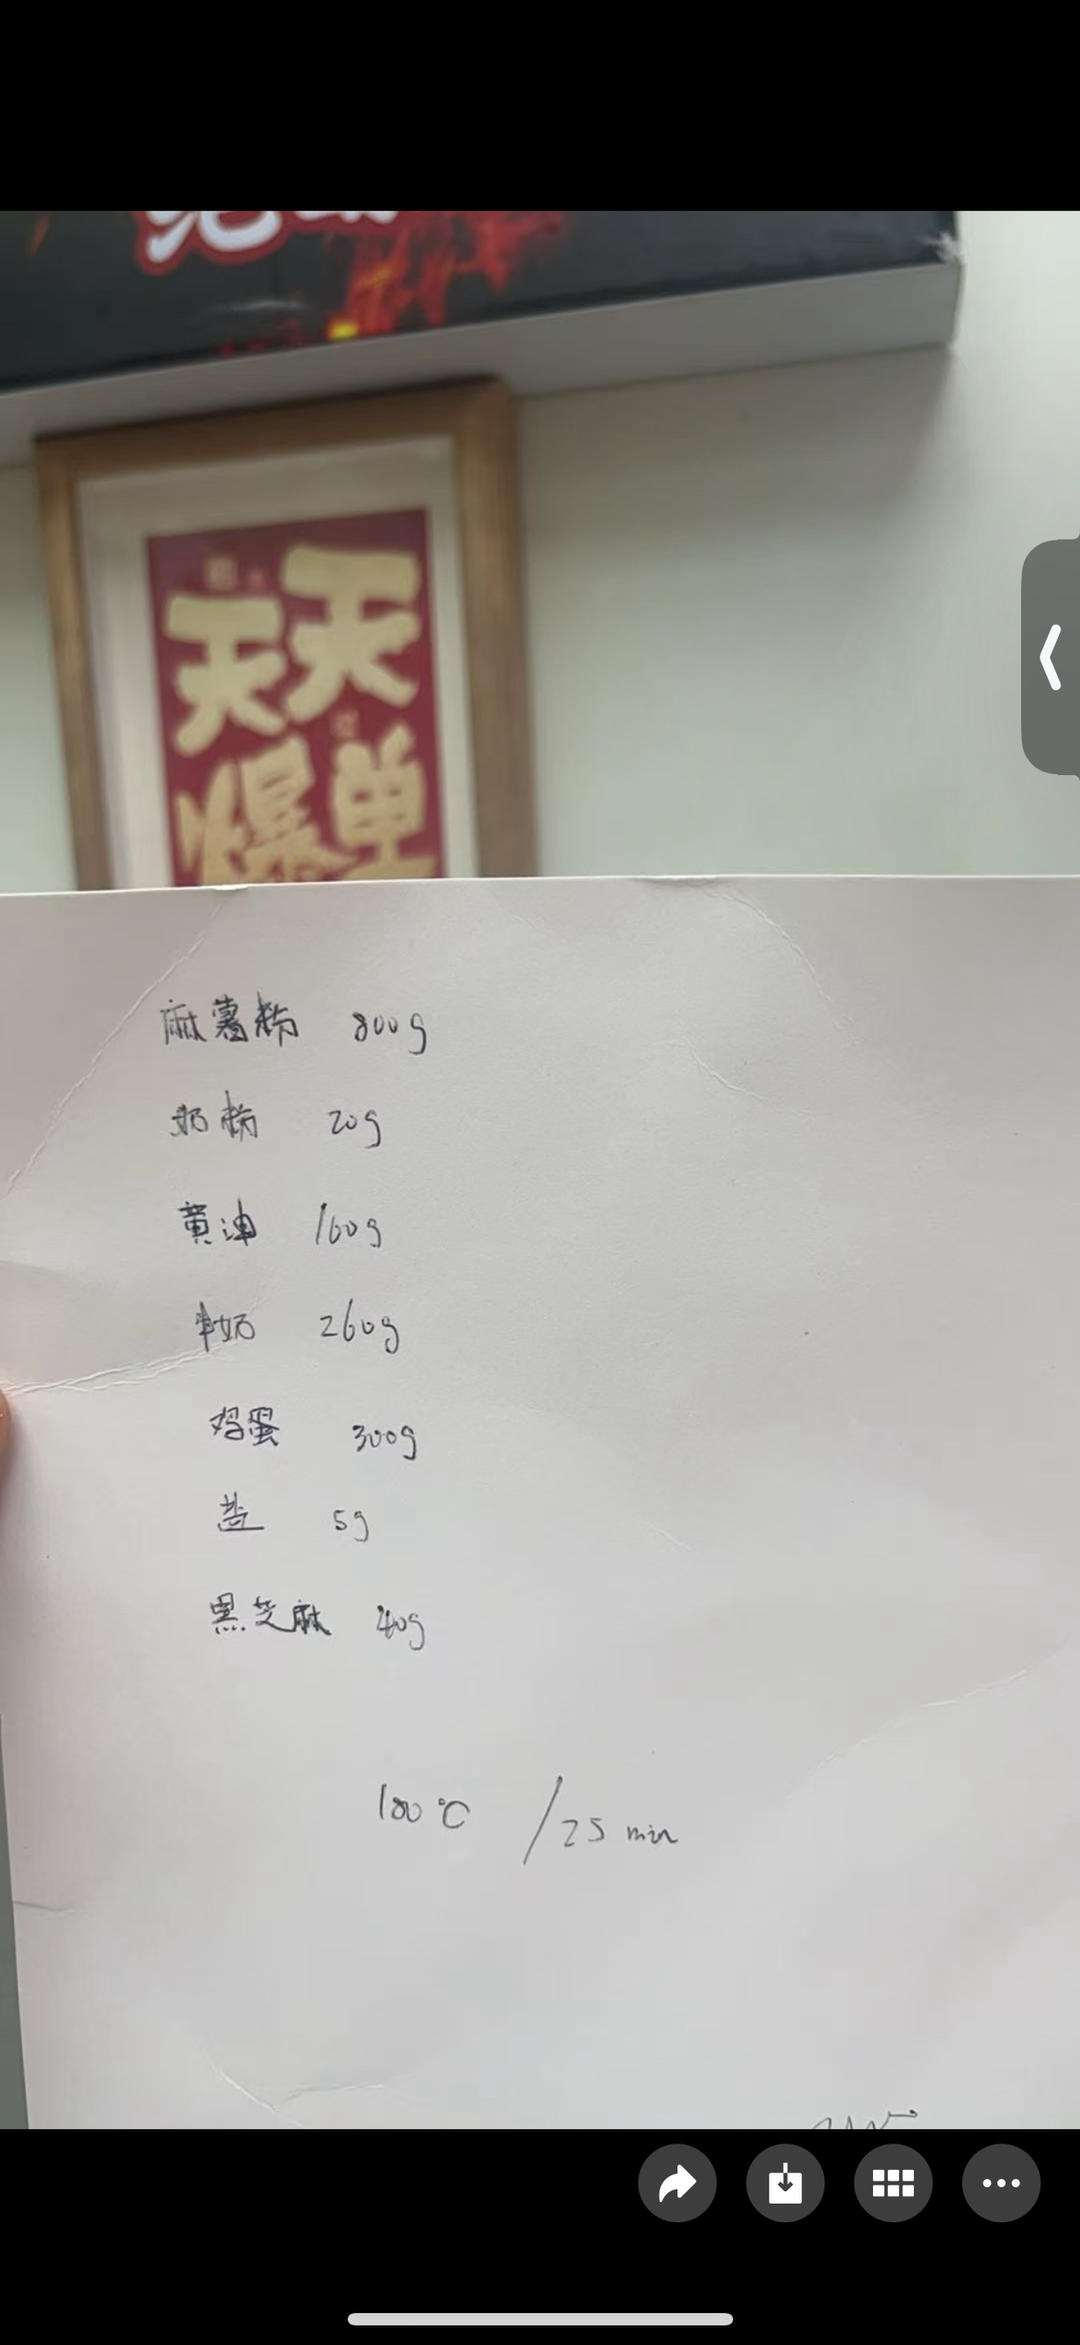 天天
爆单
麻薯粉 800g
奶粉 20g
黄油 160g
牛奶 260g
鸡蛋 300g
盐 5g
黑芝麻 40g
180℃ /25 min